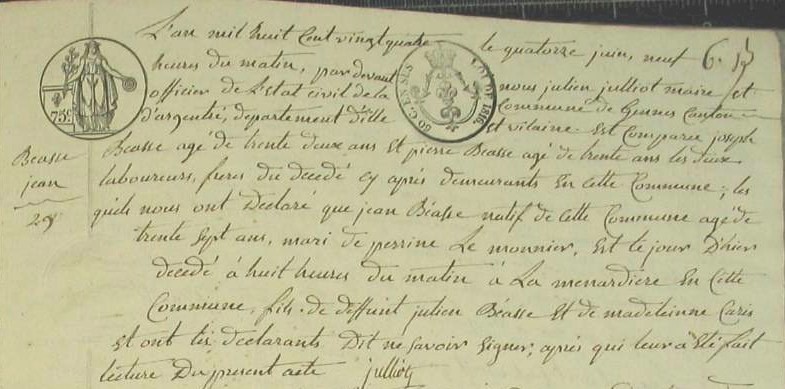 L'an mil huit Cent vingt quatre le quatorze juin, neuf
heures du matin, par devant nous julien julliot maire et
officier de L'Etat civil de la Commune de Gennes Canton
d'argentré, departement d'ille et vilaine. Est Comparu joseph
Beasse agé de trente deux ans Et pierre Beasse agé de trente ans les deux
laboureurs, freres du decedé cy après demeurants En cette Commune, les
quels nous ont Declaré que jean Béasse natif de Cette Commune agé de
trente Sept ans, mari de perrine Le monnier, Est le jour D'hier
decedé à huit heures du matin à La menardiere En Cette
Commune, fils de deffunt julien Béasse Et de madeleinne Caris
Et ont les declarants Dit ne Savoir Signer, après qui leur a Eté fait
lecture Du present acte julliot
Beasse
jean
6.
75c
LOI DE 1816